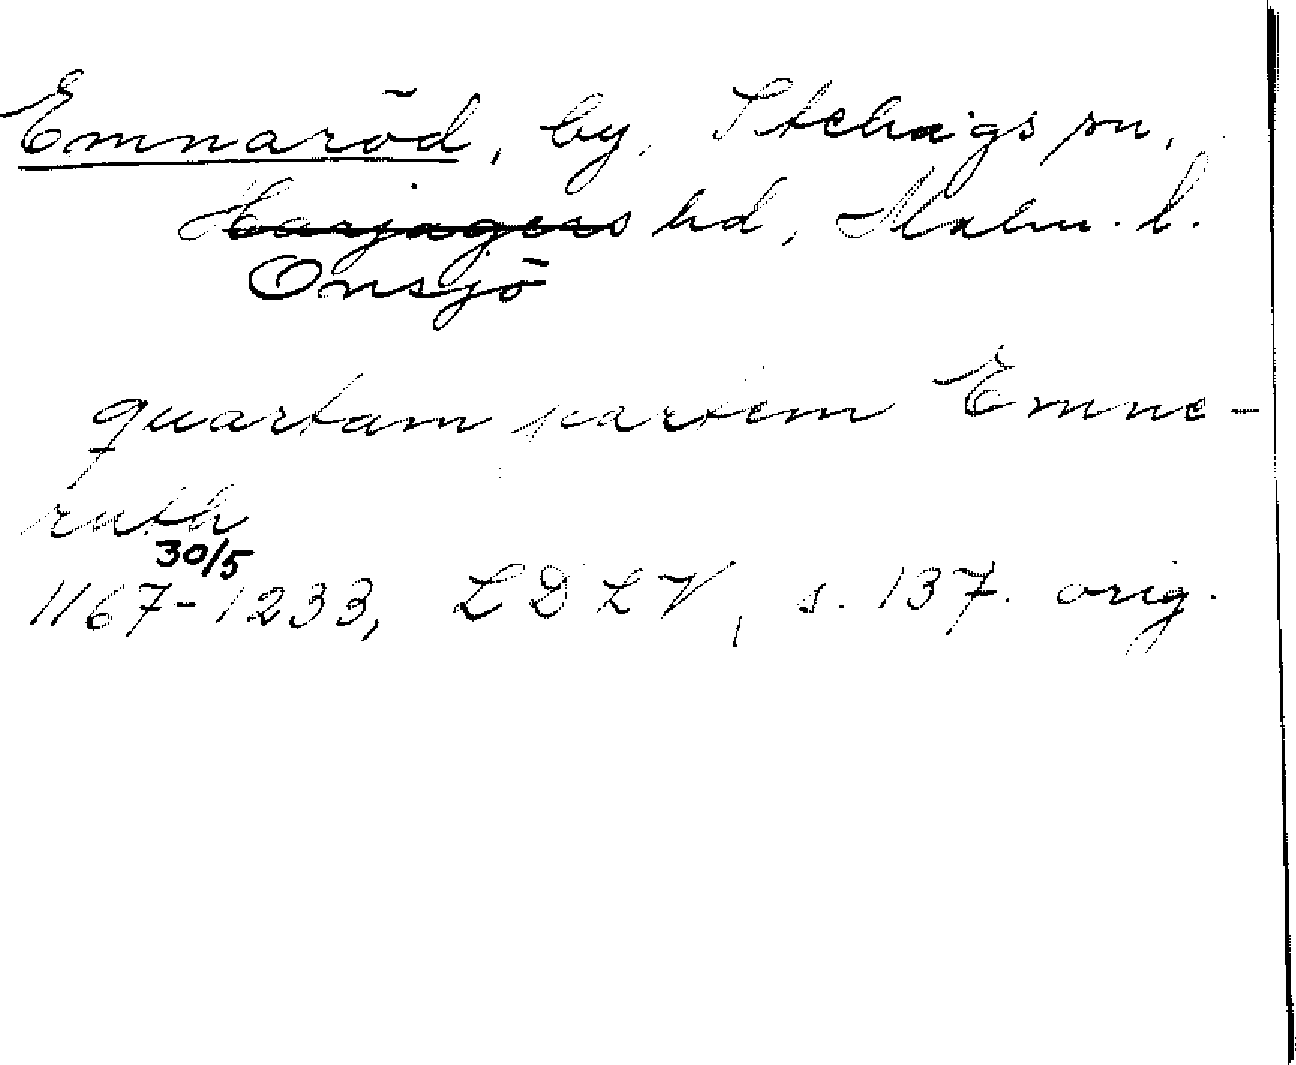 Emnaröd, by, Stehags sn,
Harjagers hd, Malm. l.
Onsjö
quartam partem Emne-
ruth
30/5
1167-1233, LDLV, s. 137. orig.